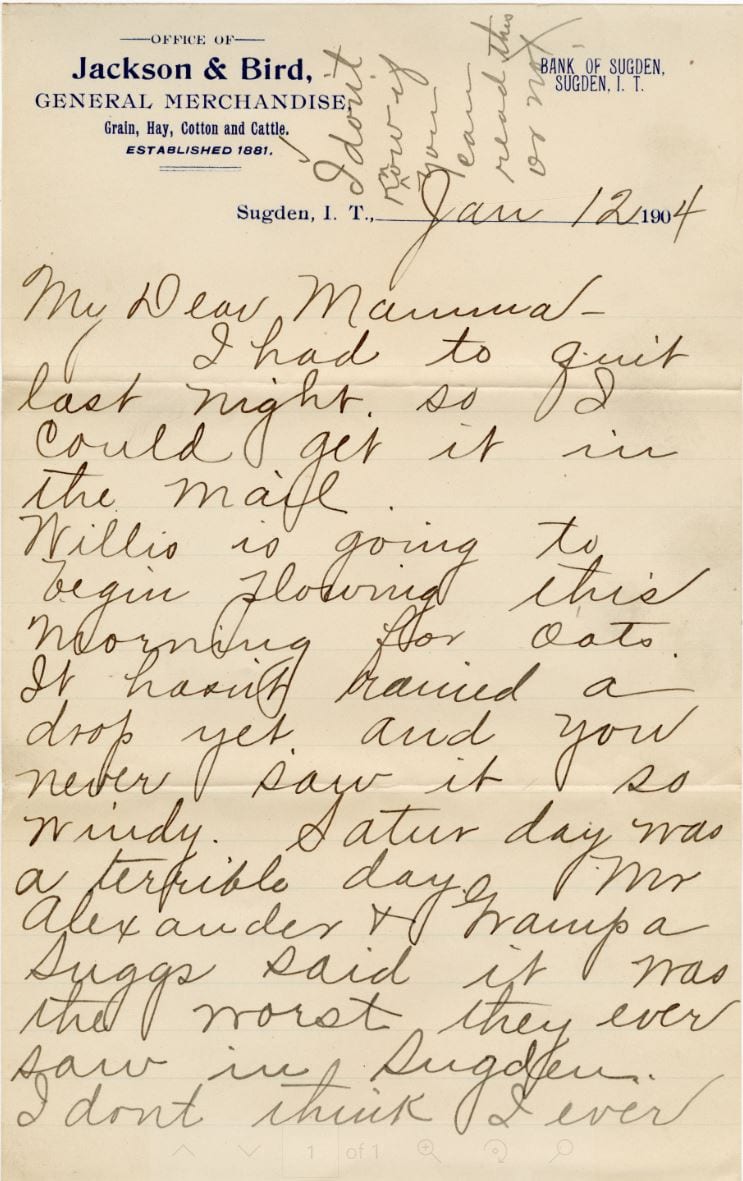 OFFICE OF
Jackson & Bird,
GENERAL MERCHANDISE,
Grain, Hay, Cotton and Cattle.
ESTABLISHED 1881.
BANK OF SUGDEN,
SUGDEN, I. T.
I don't
know if
you
can
read this
or not
Sugden, I. T., Jan 12 1904
My Dear Mamma-
I had to quit
last night. so I
could get it in
the mail.
Willis is going to
begin plowing this
morning for oats.
It hasn't rained a
drop yet and you
never saw it so
windy. Saturday was
a terrible day. Mr
Alexander & Grampa
Suggs said it was
the worst they ever
saw in Sugden.
I dont think I ever
1 of 1